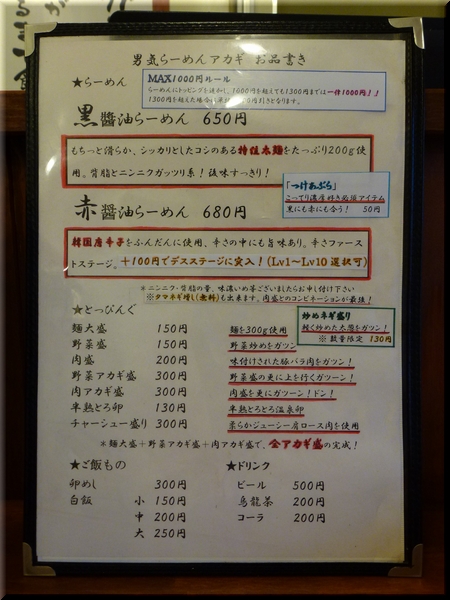 男気らーめんアカギ お品書き
★らーめん
MAX1000円ルール
1300円を超えた場合は
黒醤油らーめん 650円
もちっと滑らか、シッカリとしたコシのある特注太麺をたっぷり200g使
用。背脂とニンニクガッツリ系!後味すっきり!
「つけあぶら」
こってり濃度好き必須アイテム
黒にも赤にも合う! 50円
赤醤油らーめん 680円
韓国唐辛子をふんだんに使用、辛さの中にも旨味あり。辛さファース
トステージ。+100円でデスステージに突入!(Lv1~Lv10選択可)
*ニンニク・背脂の量、味濃いめ等ございましたらお申し付け下さい
※タマネギ増し(無料)も出来ます。肉盛とのコンビネーションが最強!
★とっぴんぐ
炒めネギ盛り
軽く炒めた太ネギをガツン!
※数量限定 130円
麺大盛 150円 麺を300g使用
野菜盛 150円 野菜炒めをガツン
肉盛 200円 味付けされた豚バラ肉をガツン!
野菜アカギ盛 300円 野菜盛の更に上を行くガツーン!
肉アカギ盛 300円 肉盛を更にガツーン!ドン!
半熟とろ卵 130円 半熟とろとろ温泉卵
チャーシュー盛り 300円 柔らかジューシー肩ロース肉を使用
*麺大盛+野菜アカギ盛+肉アカギ盛で、全アカギ盛の完成!
★ご飯もの
卵めし 300円
白飯 小 150円
中 200円
大 250円
★ドリンク
ビール 500円
烏龍茶 200円
コーラ 200円